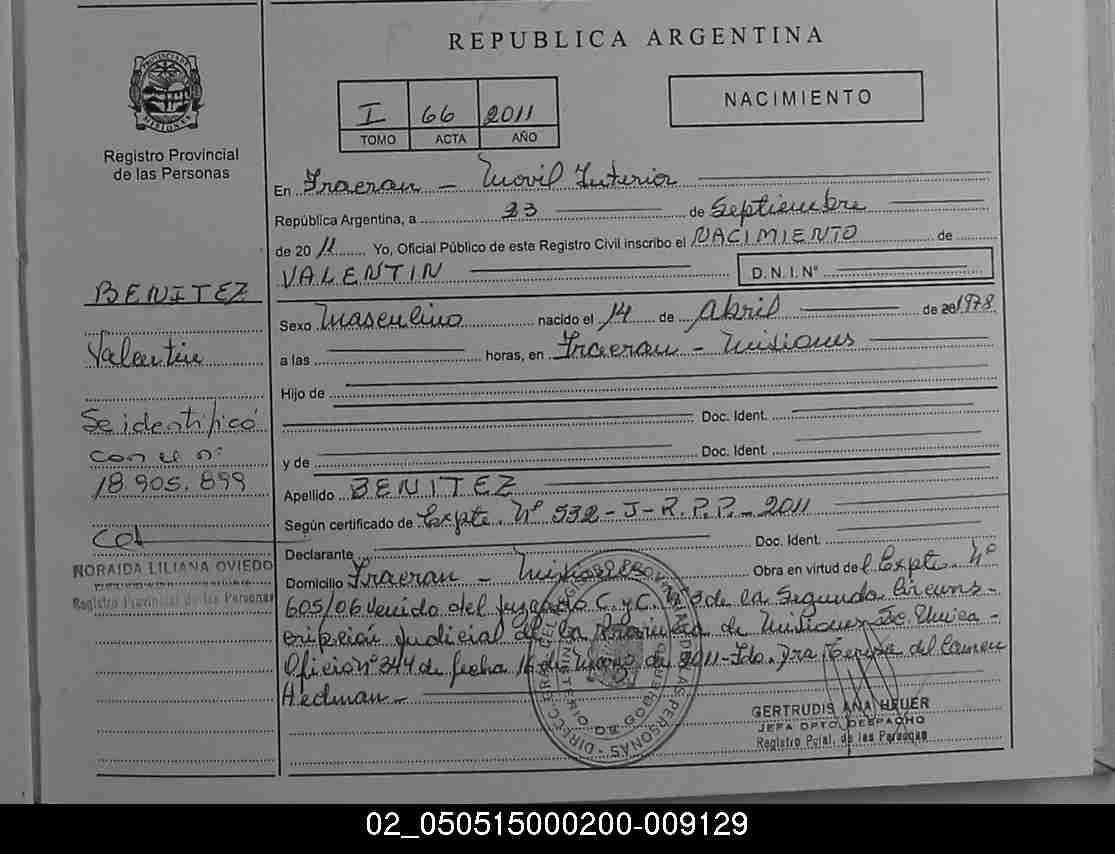 REPUBLICA ARGENTINA
PROVINCIA DE MISIONES
Registro Provincial
de las Personas
I 66 2011
TOMO ACTA AÑO
NACIMIENTO
En Fracran - Movil Interior
República Argentina, a 23 de Septiembre
de 20 11 Yo, Oficial Público de este Registro Civil inscribo el NACIMIENTO de
VALENTIN D.N.I.Nº
Sexo Masculino nacido el 14 de Abril de 20 1978
a las horas, en Fracran - Misiones
Hijo de
Doc. Ident.
y de Doc. Ident.
Apellido BENITEZ
Según certificado de Expte. Nº 532-J-R.P.P.-2011
Declarante Doc. Ident.
Domicilio Fracran - Misiones Obra en virtud del Expte. Nº
605/06 venido del Juzgado C. y C. Nº 3 de la Segunda Circuns-
cripción Judicial de la Provincia de Misiones Sec. Unica -
Oficio Nº 344 de fecha 16 de Marzo de 2011 - Fdo. Dra Teresa del Carmen
Hedman -
BENITEZ
Valentin
Se identificó
con el nº
18.905.899
NORAIDA LILIANA OVIEDO
Registro Provincial de las Personas
GERTRUDIS ANA HEUER
JEFA DPTO DESPACHO
Registro Pcial. de las Personas
02_050515000200-009129